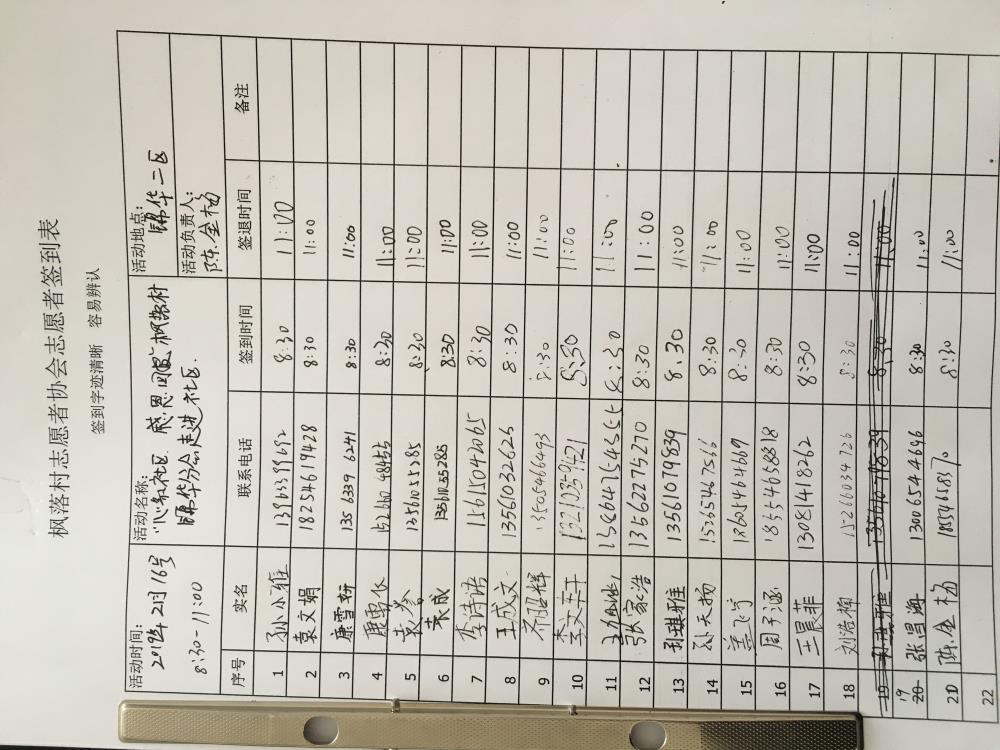 枫落村志愿者协会志愿者签到表
签到字迹清晰 容易辨认
活动时间: 活动名称: 活动地点:
2019年2月16号 "心系社区 感恩回馈"枫落村 锦华二区
8:30-11:00 锦华分会走进社区 活动负责人: 陈金杨
序号 实名 联系电话 签到时间 签退时间 备注
1 孙小雅 13963399692 8:30 11:00
2 袁文娟 18254619428 8:30 11:00
3 康雪妍 135 6339 6241 8:30 11:00
4 8:20 11:00
5 13561055285 8:20 11:00
6 袁成 13561055285 8:30 11:00
7 李诗语 15615042065 8:30 11:00
8 王成文 13561032625 8:30 11:00
9 齐昭辉 13505466493 8:30 11:00
10 8:30 11:00
11 8:30 11:00
12 张家浩 13562275270 8:30 11:00
13 孙琪雅 13561079839 8:30 11:00
14 孙天扬 15365467566 8:30 11:00
15 姜飞宇 13605464669 8:30 11:00
16 周子涵 18554658818 8:30 11:00
17 王晨菲 13081418262 8:30 11:00
18 刘浩楠 15266034726 8:30 11:00
19 孙琪雅 13561079839 8:30 11:00
19 20 张昌海 13006546 8:30 11:00
20 陈金杨 1854658370 8:30 11:00
22